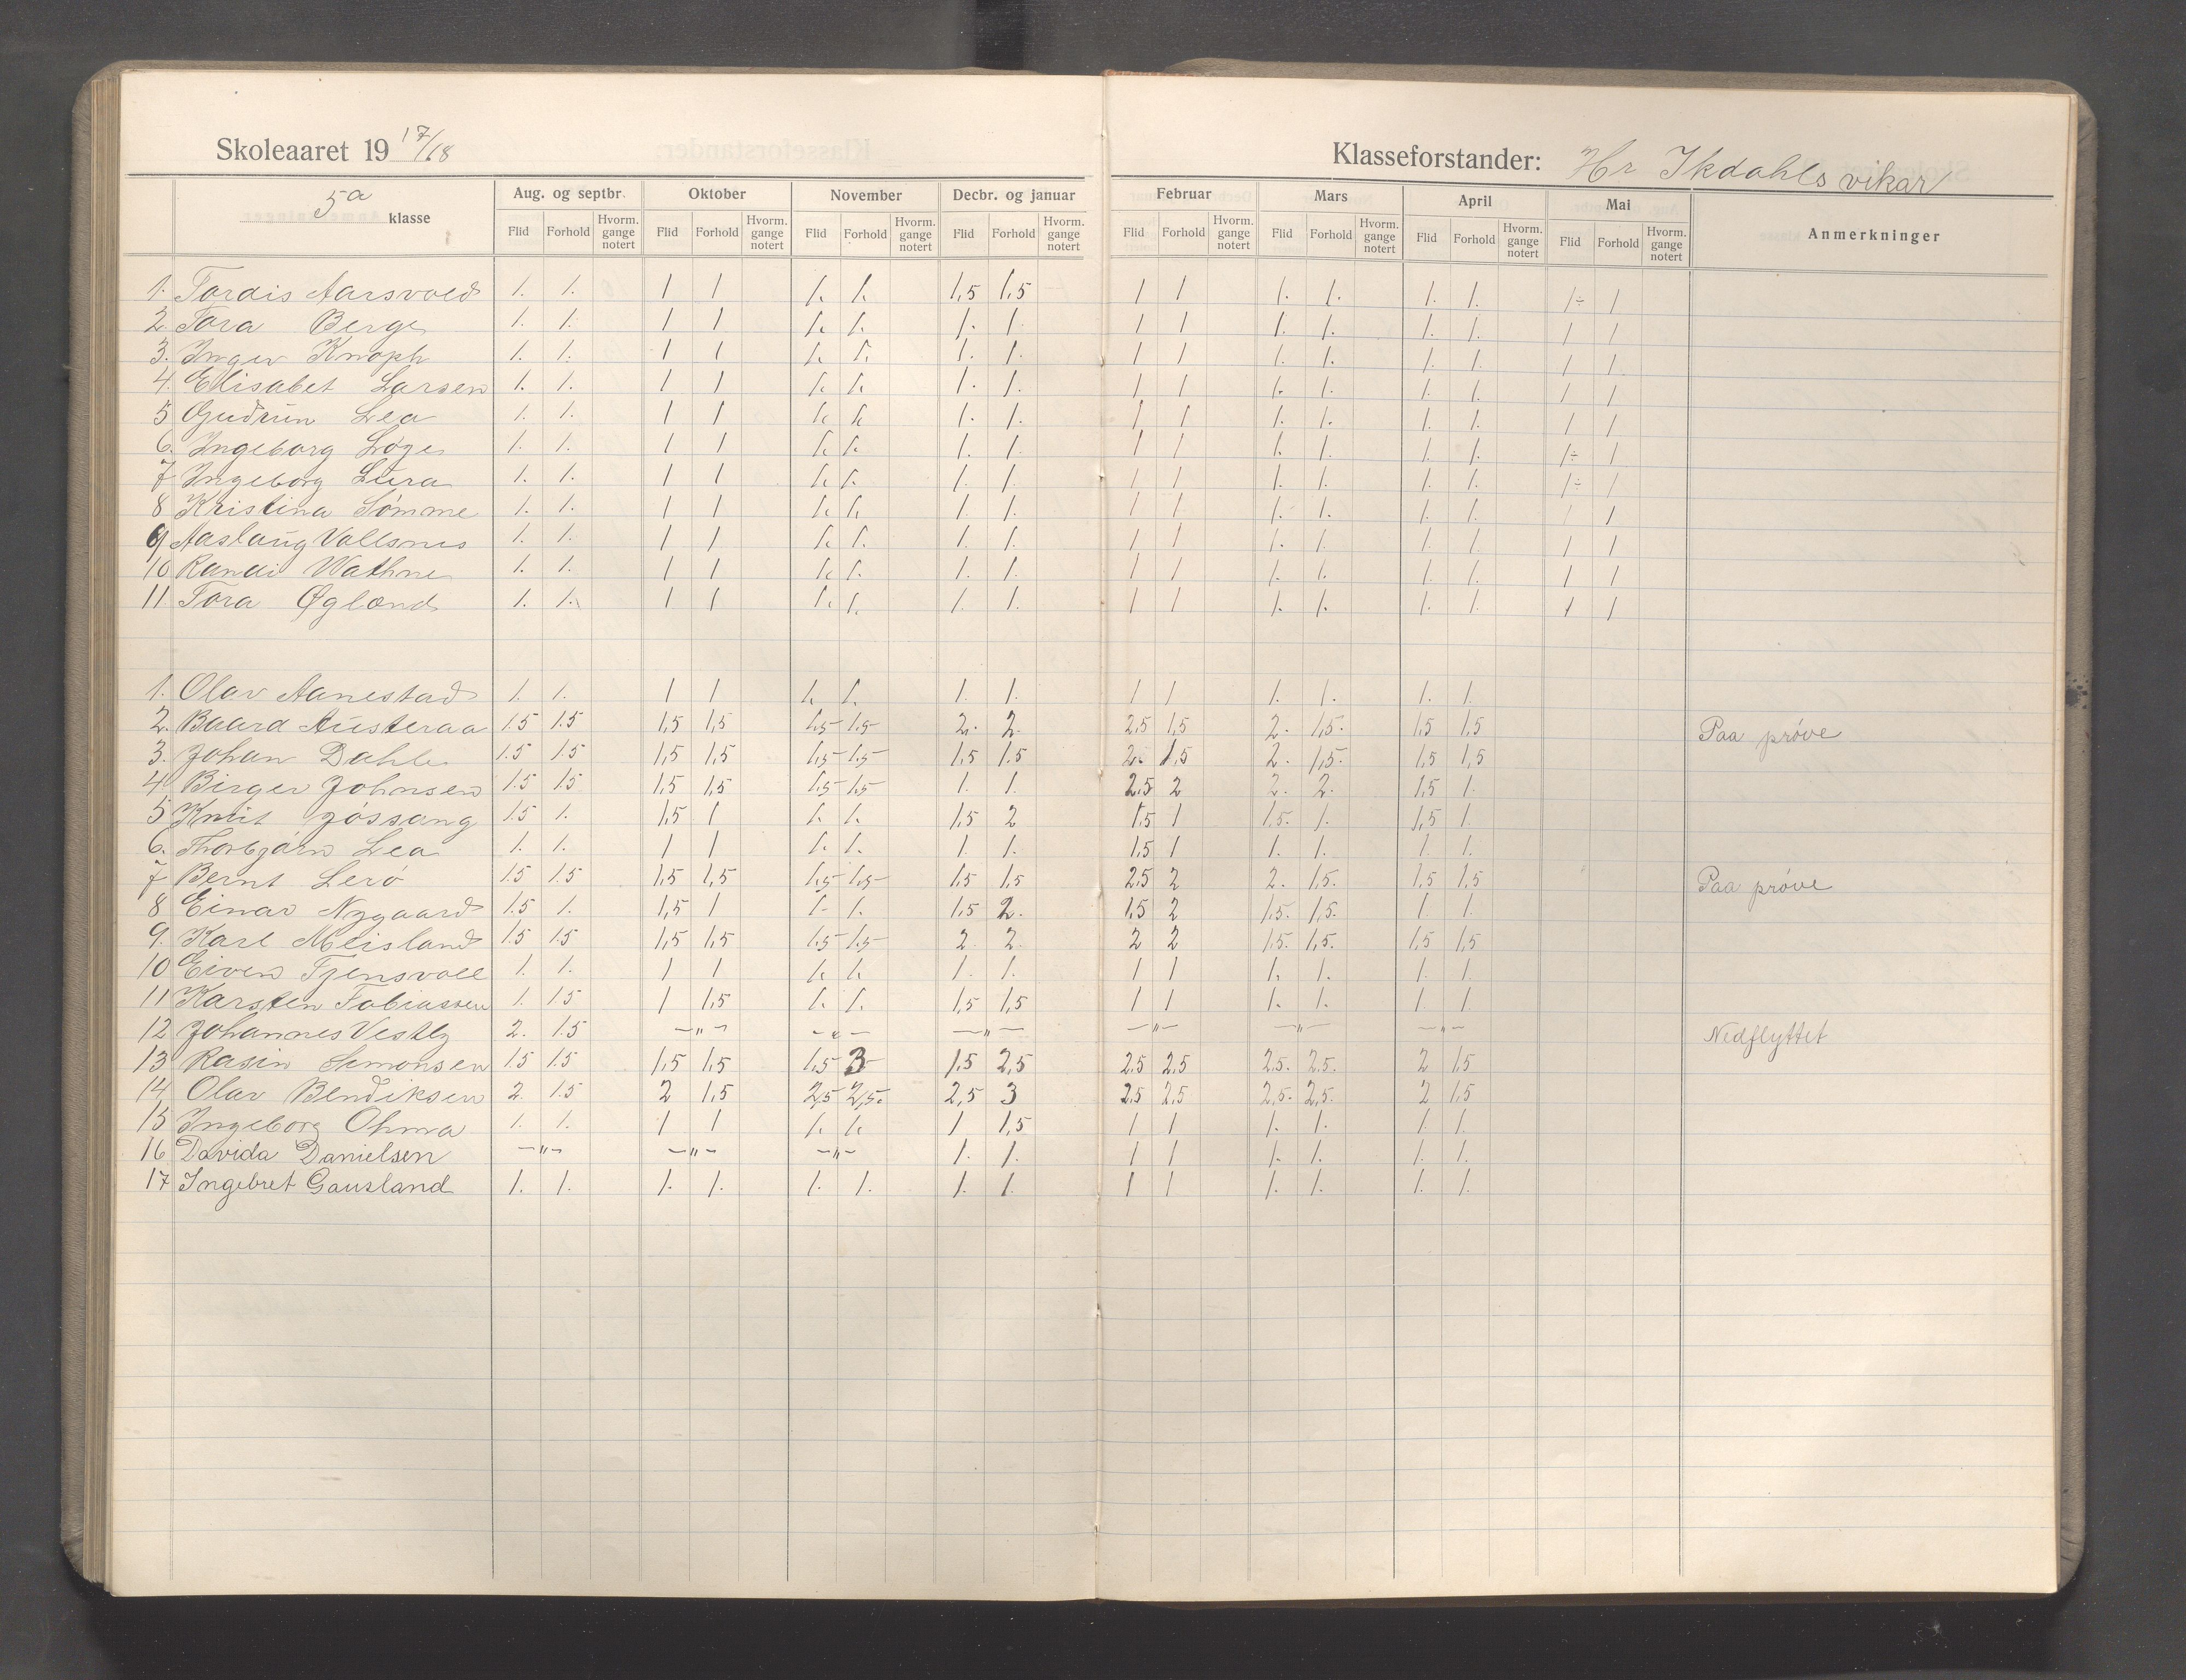 Skoleaaret 19 17/18 Klasseforstander: Hr Ikdahls vikar
5a klasse Aug. og septbr. Oktober November Decbr. og januar Februar Mars April Mai Anmerkninger
Flid Forhold Hvorm. gange notert Flid Forhold Hvorm. gange notert Flid Forhold Hvorm. gange notert Flid Forhold Hvorm. gange notert Flid Forhold Hvorm. gange notert Flid Forhold Hvorm. gange notert Flid Forhold Hvorm. gange notert Flid Forhold Hvorm. gange notert
1. Tordis Aarsvold 1. 1. 1 1 1. 1. 1,5 1,5 1 1 1. 1. 1. 1. 1÷ 1
2. Tora Berge 1. 1. 1 1 1. 1. 1. 1. 1 1 1. 1. 1. 1. 1 1
3. Inger Knoph 1. 1. 1 1 1. 1. 1. 1. 1 1 1. 1. 1. 1. 1 1
4. Elisabet Larsen 1. 1. 1 1 1. 1. 1. 1. 1 1 1. 1. 1. 1. 1 1
5 Gudrun Lea 1. 1. 1 1 1. 1. 1. 1. 1 1 1. 1. 1. 1. 1 1
6. Ingeborg Løge 1. 1. 1 1 1. 1. 1. 1. 1 1 1. 1. 1. 1. 1÷ 1
7 Ingeborg Lura 1. 1. 1 1 1. 1. 1. 1. 1 1 1. 1. 1. 1. 1÷ 1
8 Kristina Sømme 1. 1. 1 1 1. 1. 1. 1. 1 1 1. 1. 1. 1. 1 1
9 Aaslaug Vallsnes 1. 1. 1 1 1. 1. 1. 1. 1 1 1. 1. 1. 1. 1 1
10 Randi Wathne 1. 1. 1 1 1. 1. 1. 1. 1 1 1. 1. 1. 1. 1 1
11 Tora Øglænd 1. 1. 1 1 1. 1. 1. 1. 1 1 1. 1. 1. 1. 1 1
1. Olav Aanestad 1. 1. 1 1 1. 1. 1. 1. 1 1 1. 1. 1. 1.
2. Baard Austeraa 1.5 1.5 1,5 1,5 1,5 1,5 2. 2. 2,5 1,5 2. 1,5. 1,5 1,5 Paa prøve
3. Johan Dahle 1.5 1.5 1,5 1,5 1,5 1,5 1,5 1.5 2. 1,5 2. 1,5. 1,5 1,5
4 Birger Johnsen 1.5 1.5 1,5 1,5 1,5 1,5 1. 1. 2,5 2 2. 2. 1,5 1.
5 Knut Jøssang 1.5 1. 1,5 1 1. 1. 1,5 2 1,5 1 1,5. 1. 1,5 1.
6. Thorbjørn Lea 1. 1. 1 1 1. 1. 1. 1. 1,5 1 1. 1. 1. 1.
7 Bernt Lerø 1.5 1.5 1,5 1,5 1,5 1,5 1,5 1,5 2,5 2 2. 1,5. 1,5 1,5 Paa prøve
8 Einar Nygaard 1.5 1. 1,5 1 1. 1. 1,5 2. 1,5 2 1,5. 1,5. 1. 1.
9. Karl Meisland 1.5 1.5 1,5 1,5 1,5 1,5 2. 2. 2 2 1,5. 1,5. 1,5 1,5
10 Eiven Tjensvoll 1. 1. 1 1 1. 1. 1. 1. 1 1 1. 1. 1. 1.
11 Karsten Tobiassen 1. 1.5 1 1,5 1. 1. 1,5 1,5 1 1 1. 1. 1. 1.
12 Johannes Vestly 2. 1.5 —"— —"— —"— —"— —"— —"— Nedflyttet
13 Rasin Simonsen 1.5 1.5 1,5 1,5 1,5 3 1,5 2,5 2,5 2,5 2,5. 2,5. 2 1,5
14 Olav Bendiksen 2. 1.5 2 1,5 2,5 2,5. 2,5 3 2,5 2,5 2,5. 2,5. 2 1,5
15 Ingeborg Ohma 1. 1. 1 1 1. 1. 1 1,5 1 1 1. 1. 1. 1.
16 Davida Danielsen —"— —"— —"— 1. 1. 1 1 1. 1. 1. 1.
17 Ingebret Gausland 1. 1. 1. 1. 1. 1. 1. 1. 1 1 1. 1. 1. 1.